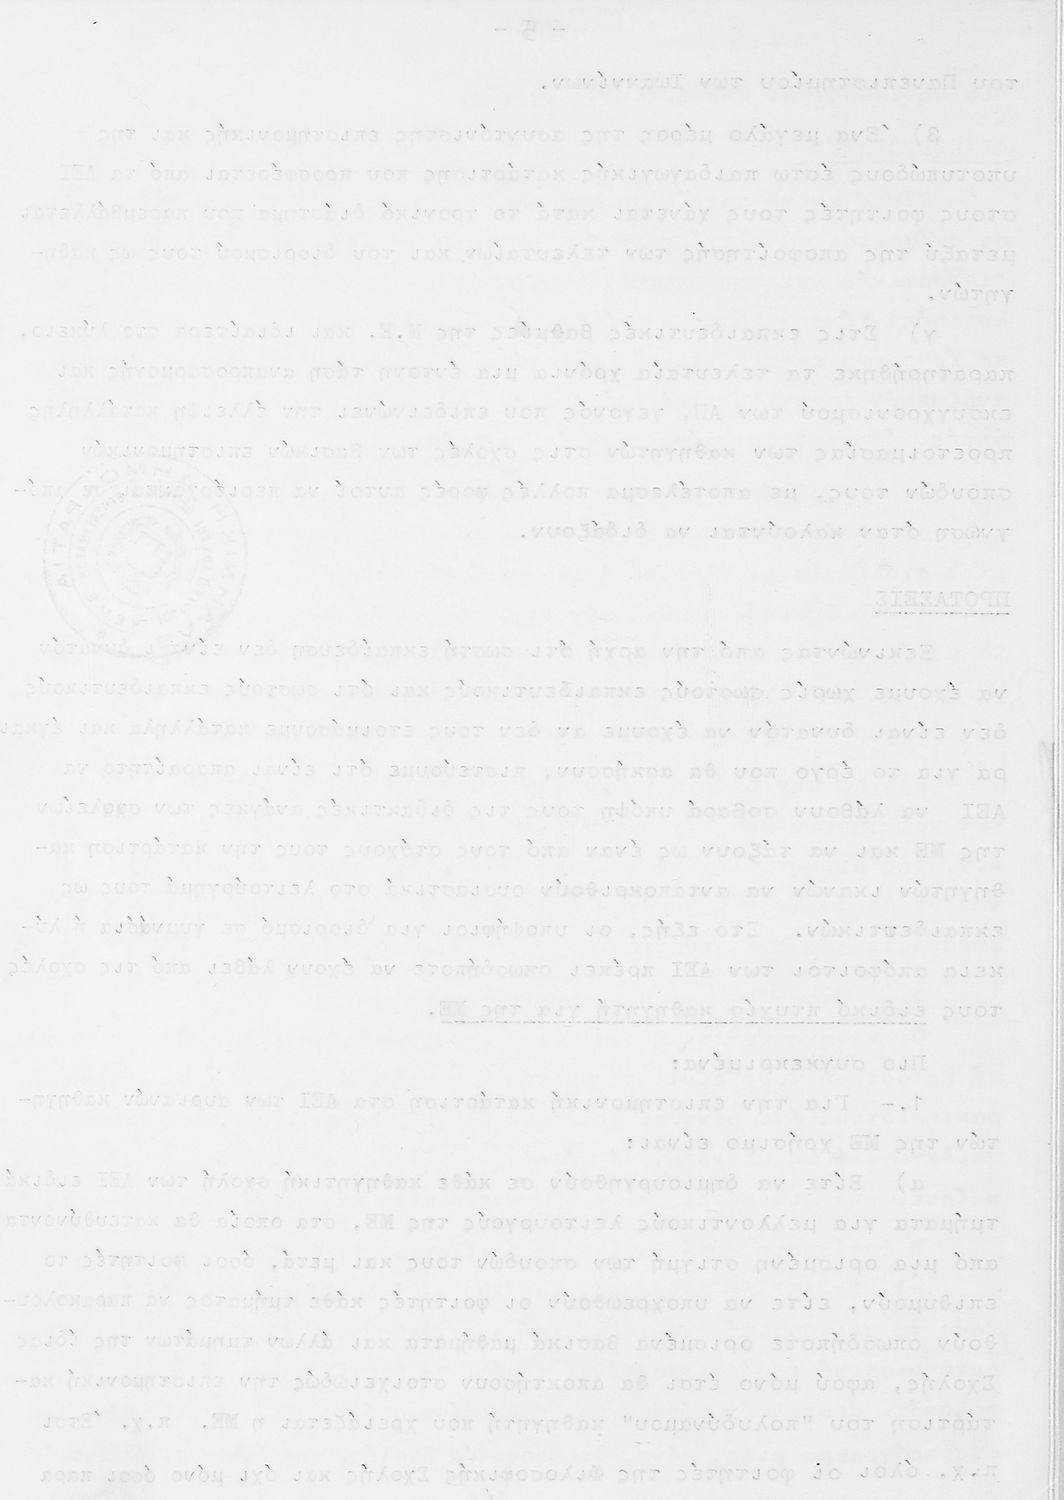 - 5 -
του Πανεπιστημίου των Ιωαννίνων.
β) Ένα μεγάλο μέρος της ασυντόνιστης επιστημονικής και της
υποτυπώδους έστω παιδαγωγικής κατάρτισης που προσφέρεται από τα ΑΕΙ
στους φοιτητές τους χάνεται κατά το χρονικό διάστημα που παρεμβάλλεται
μεταξύ της αποφοίτησής των τελευταίων και του διορισμού τους ως καθη-
γητών.
γ) Στις εκπαιδευτικές βαθμίες της Μ.Ε. και ιδιαίτερα στο λύκειο,
παρατηρήθηκε τα τελευταία χρόνια μια έντονη τάση αναπροσαρμογής και
εκσυγχρονισμού των ΑΠ, γεγονός που επιδεινώνει την έλλειψη κατάλληλης
προετοιμασίας των καθηγητών στις σχολές των βασικών επιστημονικών
σπουδών τους, με αποτέλεσμα πολλές φορές αυτοί να περιέρχονται σε από-
γνωση όταν καλούνται να διδάξουν.
ΠΡΟΤΑΣΕΙΣ
Ξεκινώντας από την αρχή ότι σωστή εκπαίδευση δεν είναι δυνατόν
να έχουμε χωρίς σωστούς εκπαιδευτικούς και ότι σωστούς εκπαιδευτικούς
δεν είναι δυνατόν να έχουμε αν δεν τους ετοιμάσουμε κατάλληλα και έγκαι
ρα για το έργο που θα ασκήσουν, πιστεύουμε ότι είναι απαραίτητο τα
ΑΕΙ να λάβουν σοβαρά υπόψη τους τις διδακτικές ανάγκες των σχολείων
της ΜΕ και να τάξουν ως έναν από τους στόχους τους την κατάρτιση κα-
θηγητών ικανών να ανταποκριθούν ουσιαστικά στο λειτούργημά τους ως
εκπαιδευτικών. Στο εξής, οι υποψήφιοι για διορισμό σε γυμνάσια ή λύ-
κεια απόφοιτοι των ΑΕΙ πρέπει οπωσδήποτε να έχουν λάβει από τις σχολές
τους ειδικό πτυχίο καθηγητή για της ΜΕ.
Πιο συγκεκριμένα:
1.- Για την επιστημονική κατάρτιση στα ΑΕΙ των αυριανών καθηγη-
τών της ΜΕ χρήσιμο είναι:
α) Είτε να δημιουργηθούν σε κάθε καθηγητική σχολή των ΑΕΙ ειδικά
τμήματα για μελλοντικούς λειτουργούς της ΜΕ, στα οποία θα κατευθύνονται
από μια ορισμένη στιγμή των σπουδών τους και μετά, όσοι φοιτητές το
επιθυμούν, είτε να υποχρεωθούν οι φοιτητές κάθε τμήματος να παρακολου-
θούν οπωσδήποτε ορισμένα βασικά μαθήματα και άλλων τμημάτων της ίδιας
Σχολής, αφού μόνο έτσι θα αποκτήσουν στοιχειωδώς την επιστημονική κα-
τάρτιση του "πολυδύναμου" καθηγητή που χρειάζεται η ΜΕ. π.χ. Έτσι
π.χ. όλοι οι φοιτητές της Φιλοσοφικής Σχολής και όχι μόνο όσοι παρα